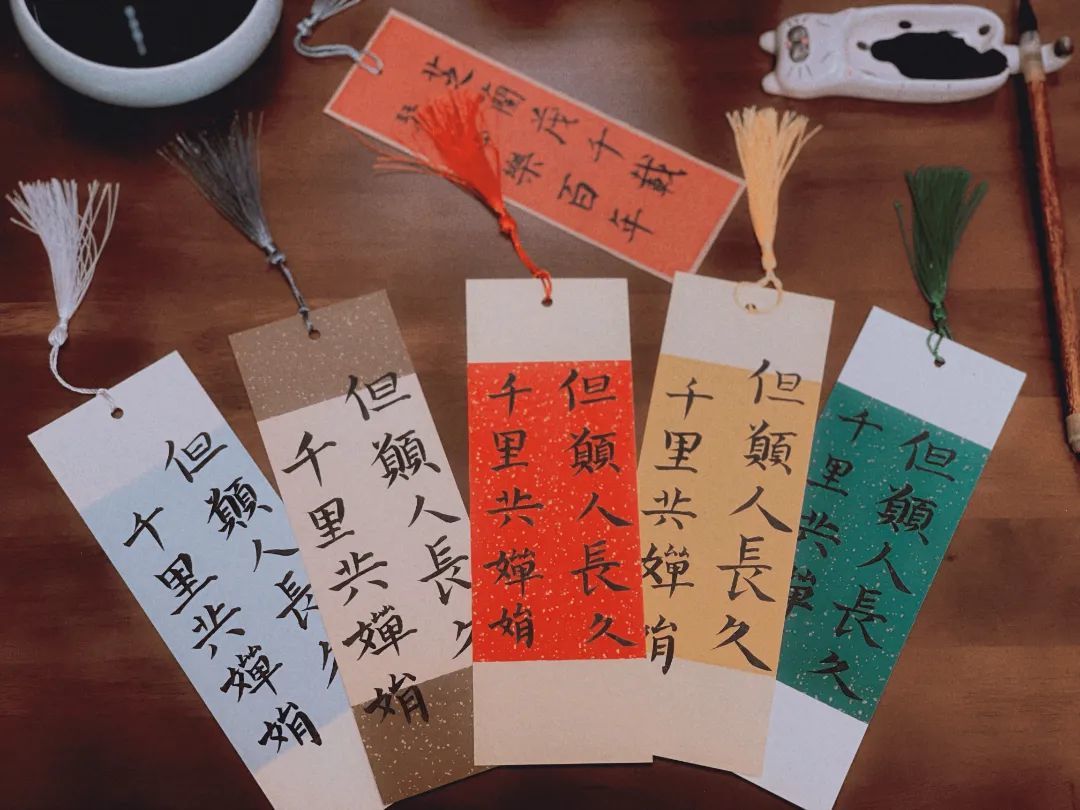 芝蘭茂千載
琴樂百年
但願人長久
千里共嬋娟
但願人長久
千里共嬋娟
但願人長久
千里共嬋娟
但願人長久
千里共嬋娟
但願人長久
千里共嬋